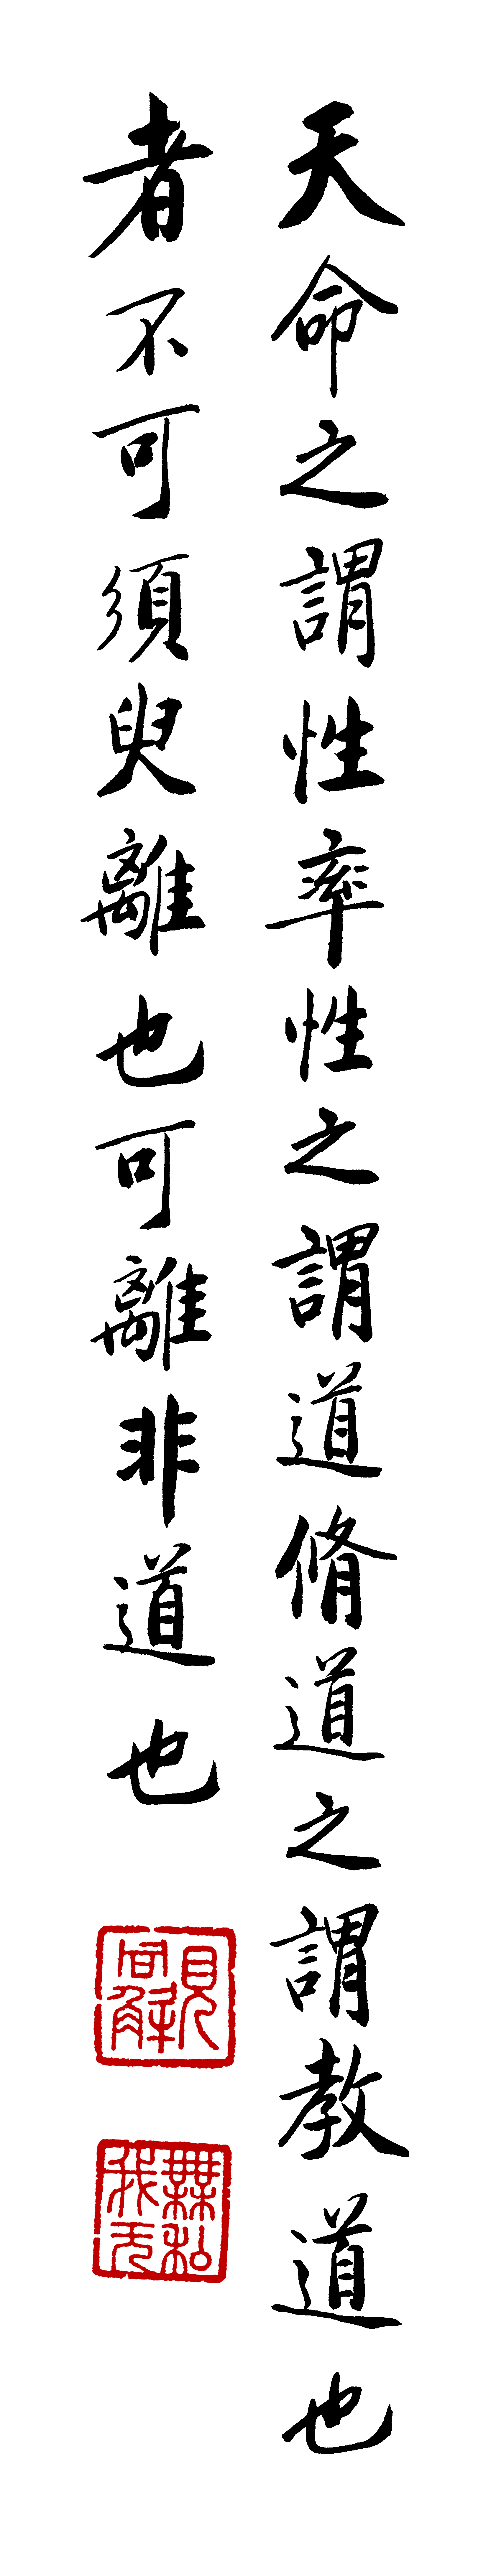 天命之謂性率性之謂道脩道之謂教道也
者不可須臾離也可離非道也
無私